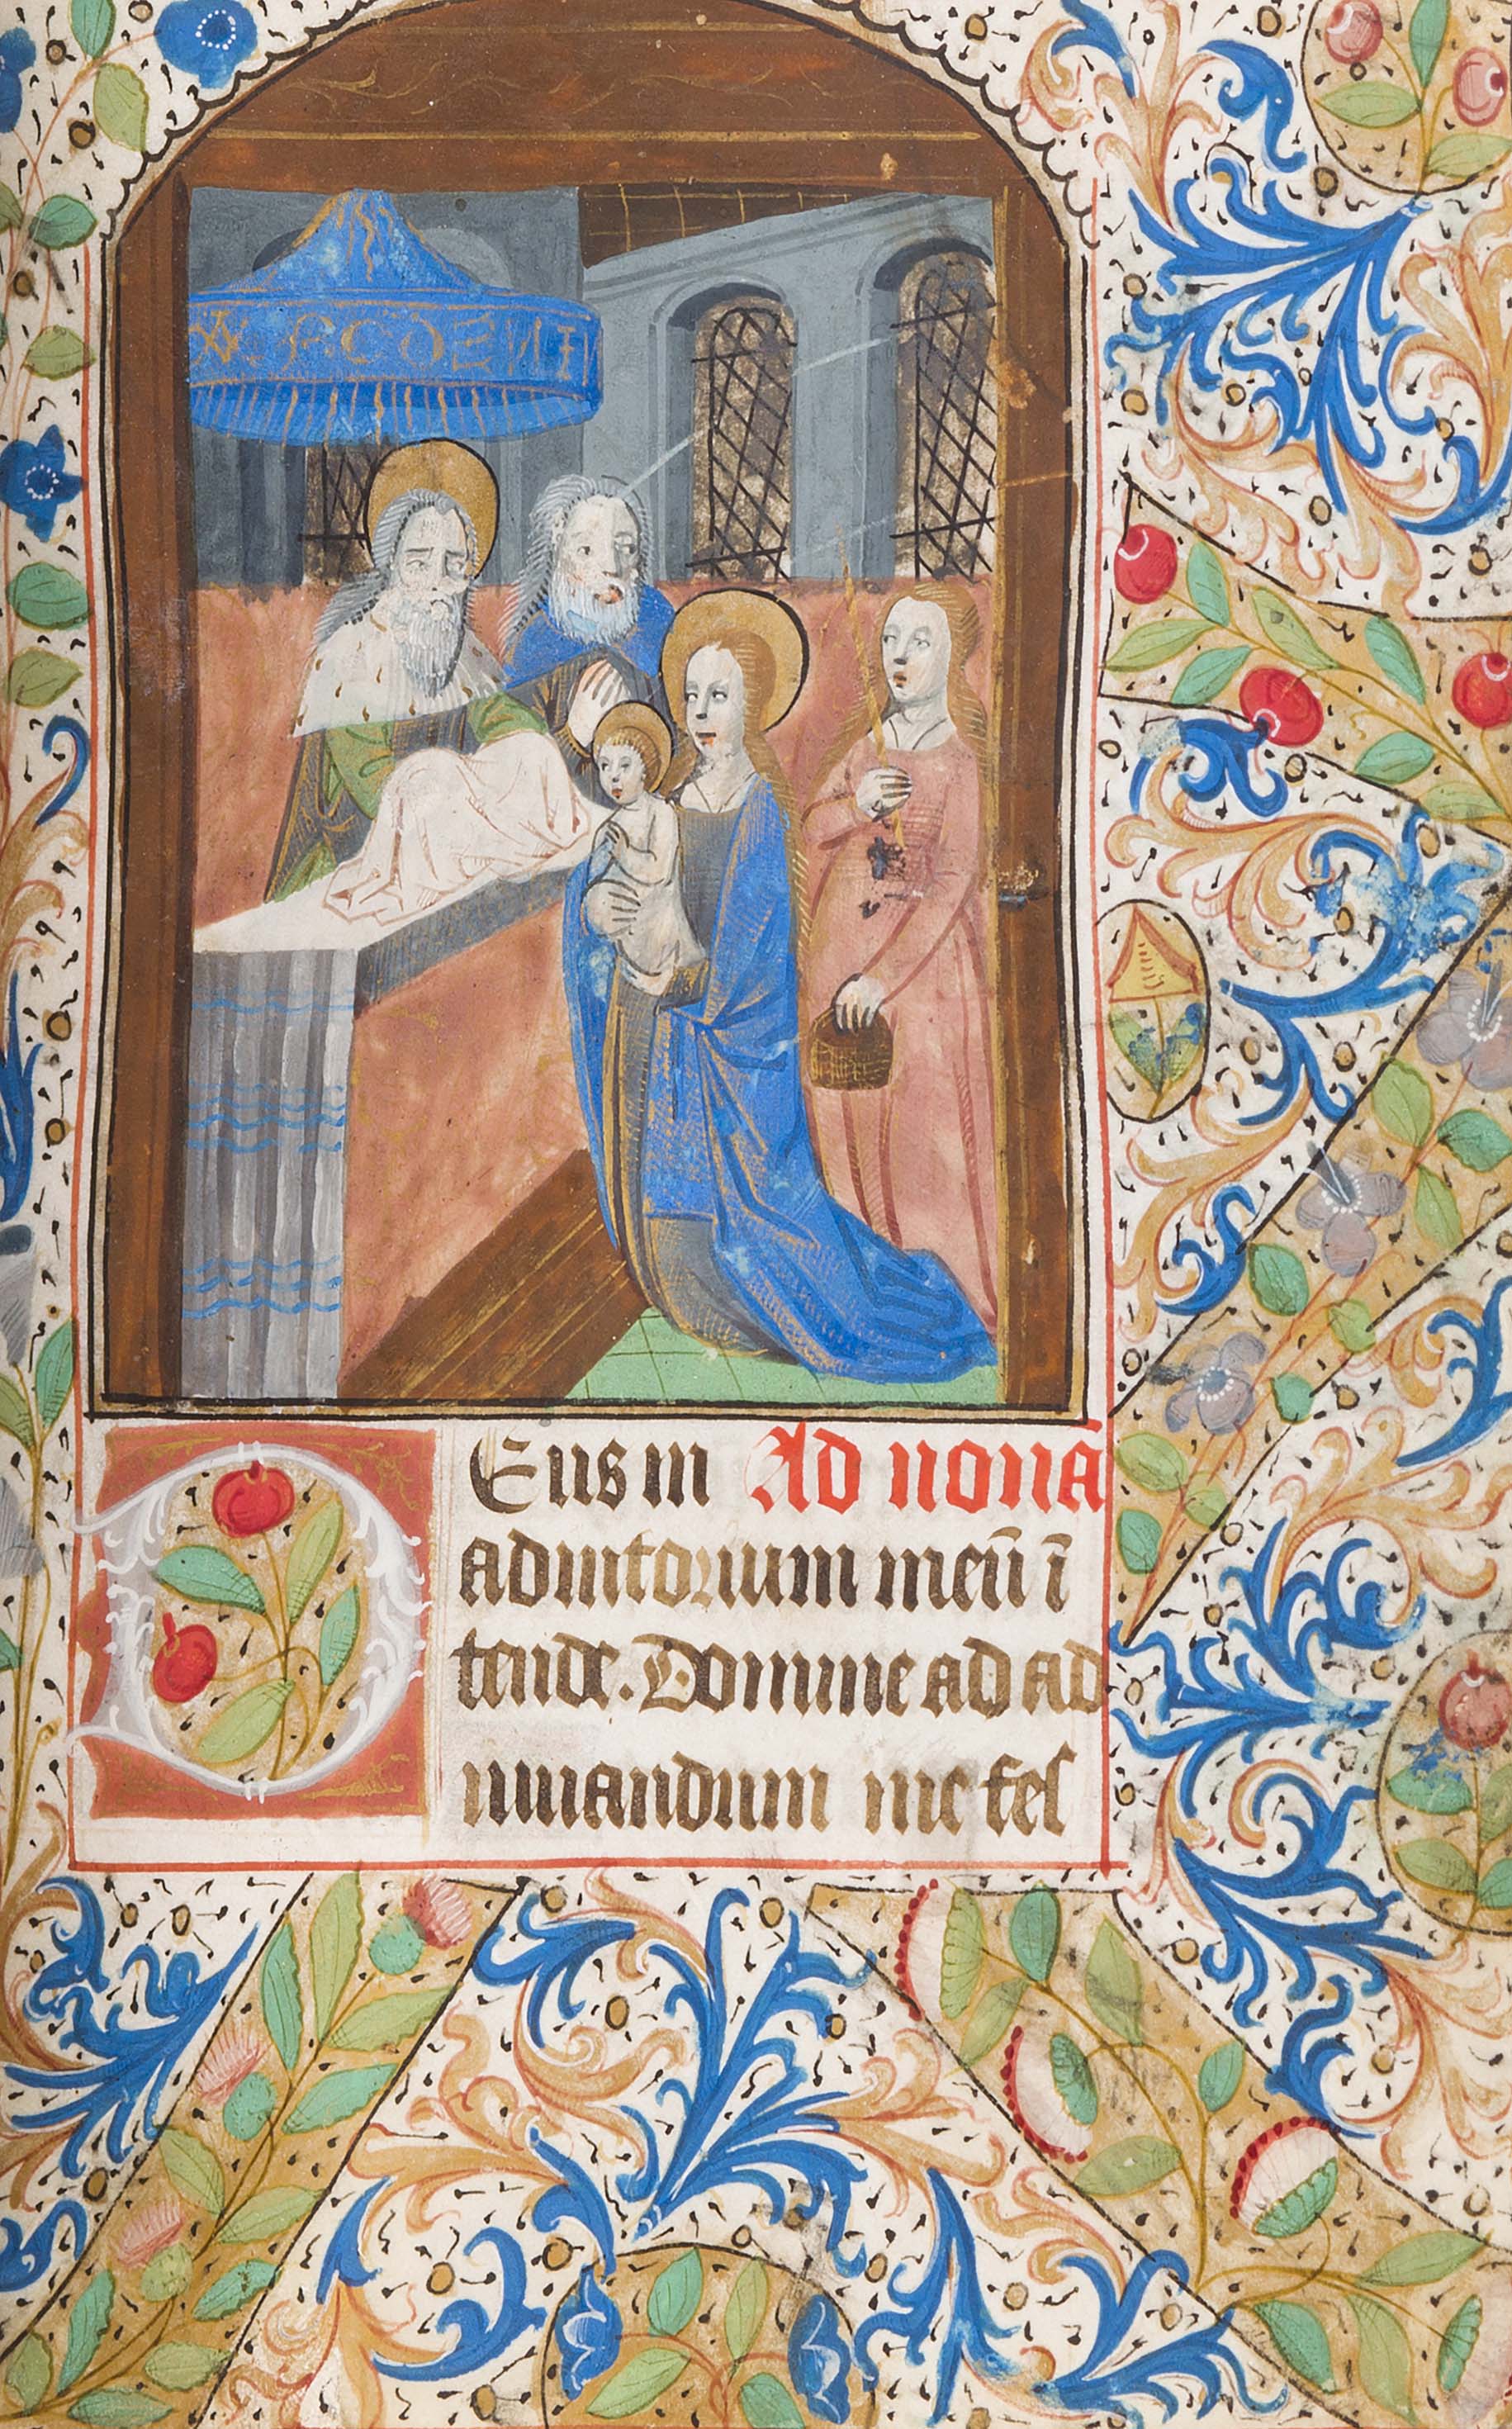 Deus in Ad nonā
adiutorium meū ī
tende. Domine ad ad
iuuandum me fes